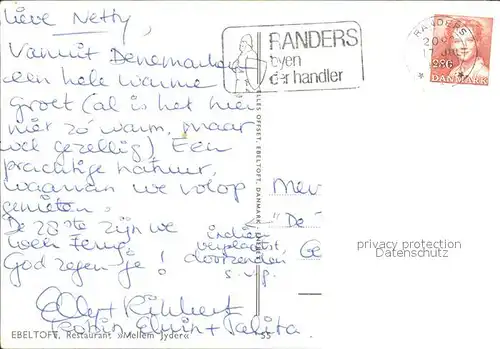 lieve Netty,
Vanuit Denemarken
een hele warme
groet (al is het hier
niet zó warm, maar
wel gezellig) Een
prachtige natuur,
waarvan we volop
genieten.
De 28ste zijn we
weer terug.
God zegen je!
Elly + Robbert
Robin Elwin + Talita
RANDERS
byen
der handler
RANDERS
20
17
280
DANMARK
OFFSET, EBELTOFT, DANMARK
Mev
"De
indien
verplaatst,
doorzenden
s.v.p.
Ge
privacy protection
Datenschutz
EBELTOFT, Restaurant »Mellem Jyder«
55